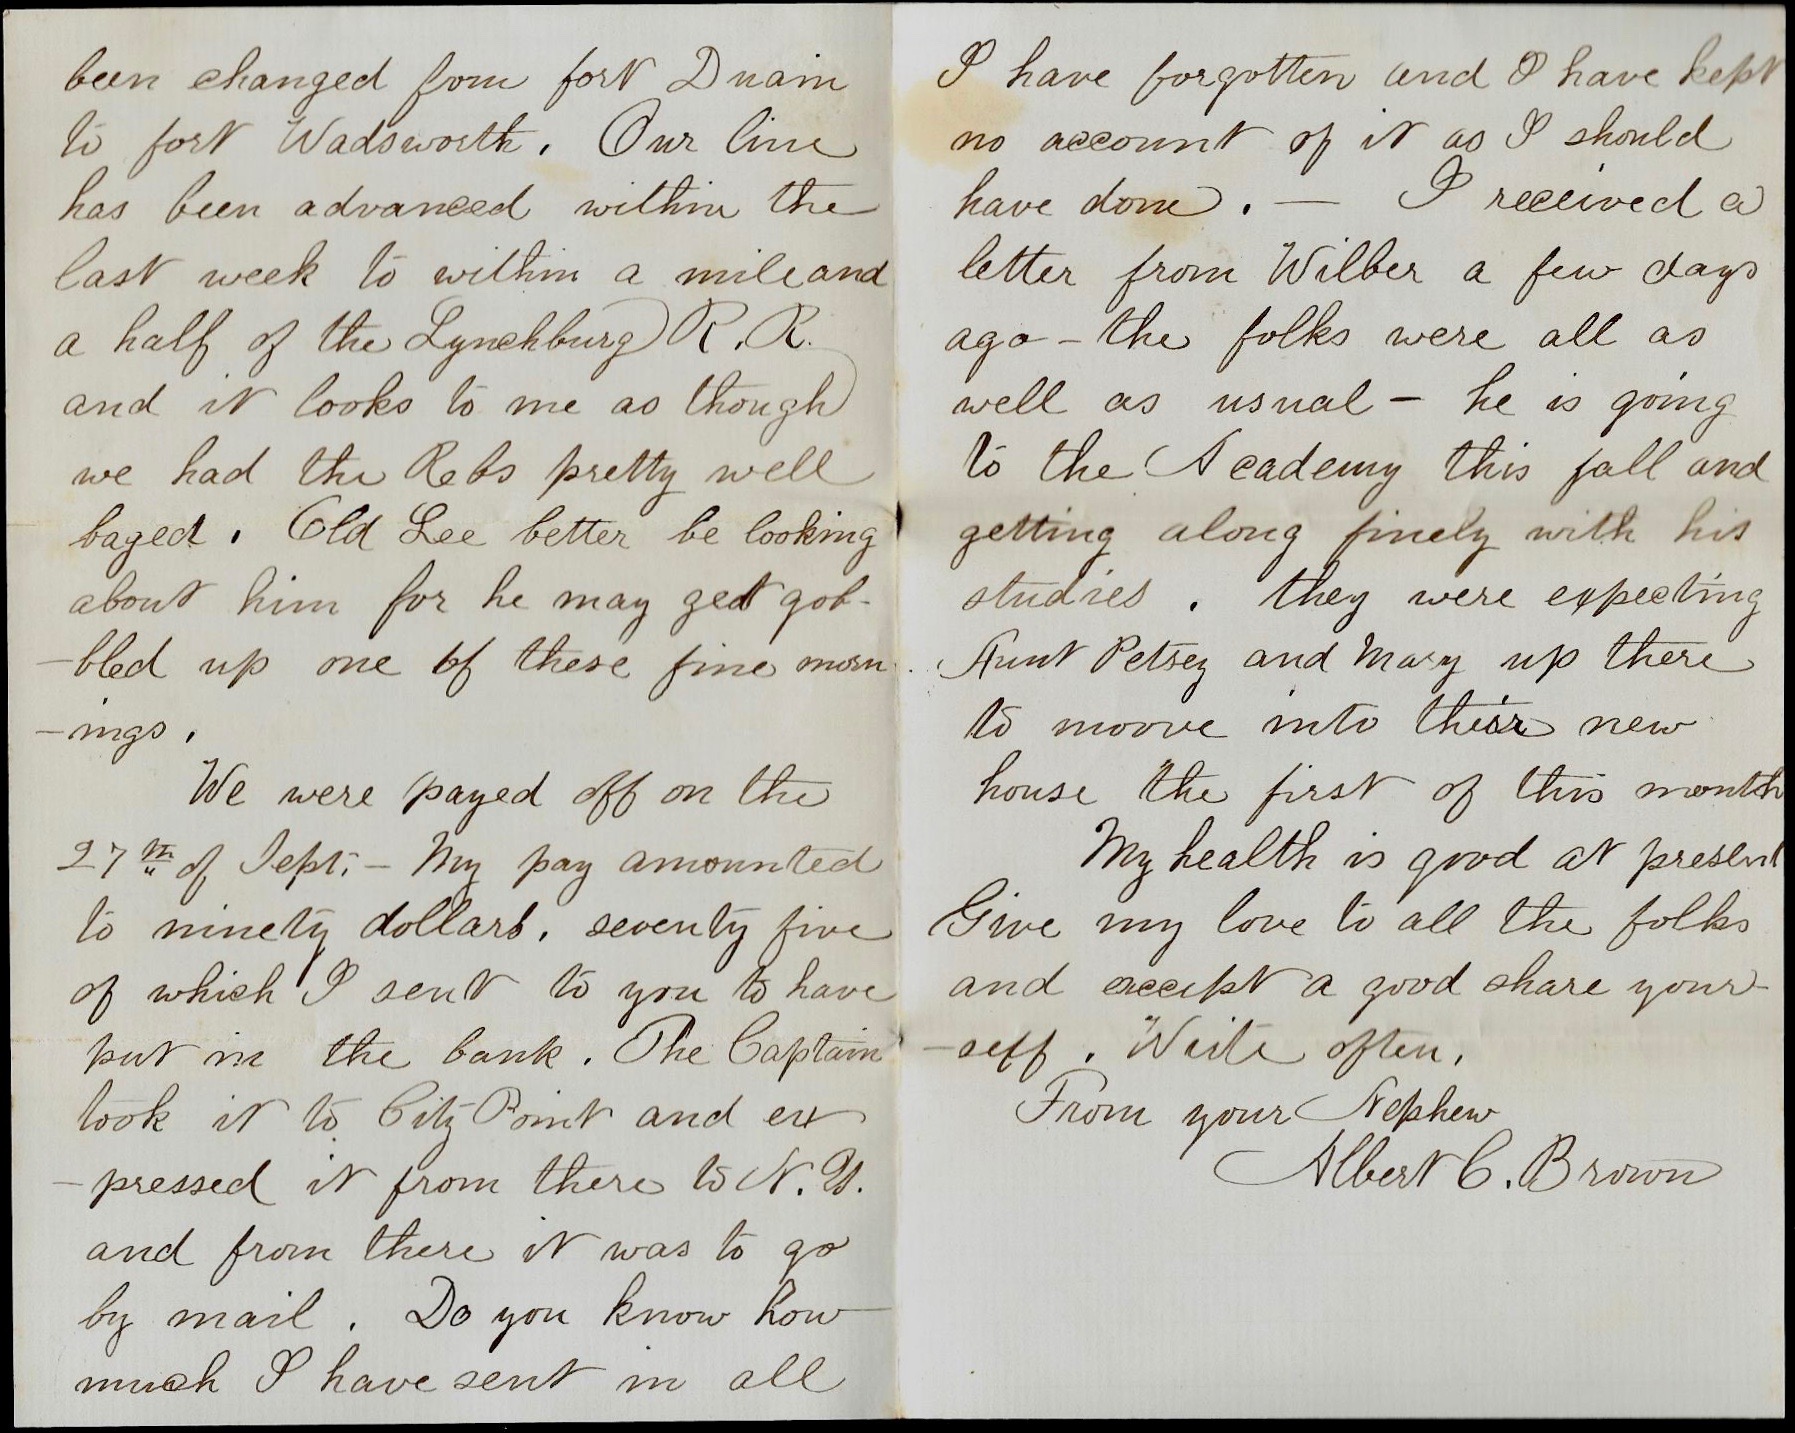 been changed from fort Duain
to fort Wadsworth. Our line
has been advanced within the
last week to within a mile and
a half of the Lynchburg R. R.
and it looks to me as though
we had the Rebs pretty well
baged. Old Lee better be looking
about him for he may get gob-
-bled up one of these fine morn
-ings.
We were payed off on the
27th of Sept. – My pay amounted
to ninety dollars, seventy five
of which I sent to you to have
put in the bank. The Captain
took it to City Point and ex
-pressed it from there to N. Y.
and from there it was to go
by mail. Do you know how
much I have sent in all
I have forgotten and I have kept
no account of it as I should
have done. — I received a
letter from Wilber a few days
ago – the folks were all as
well as usual – he is going
to the Academy this fall and
getting along finely with his
studies. they were expecting
Aunt Petsey and Mary up there
to moove into their new
house the first of this month
My health is good at present
Give my love to all the folks
and accept a good share your-
-self. Write often.
From your Nephew
Albert C. Brown